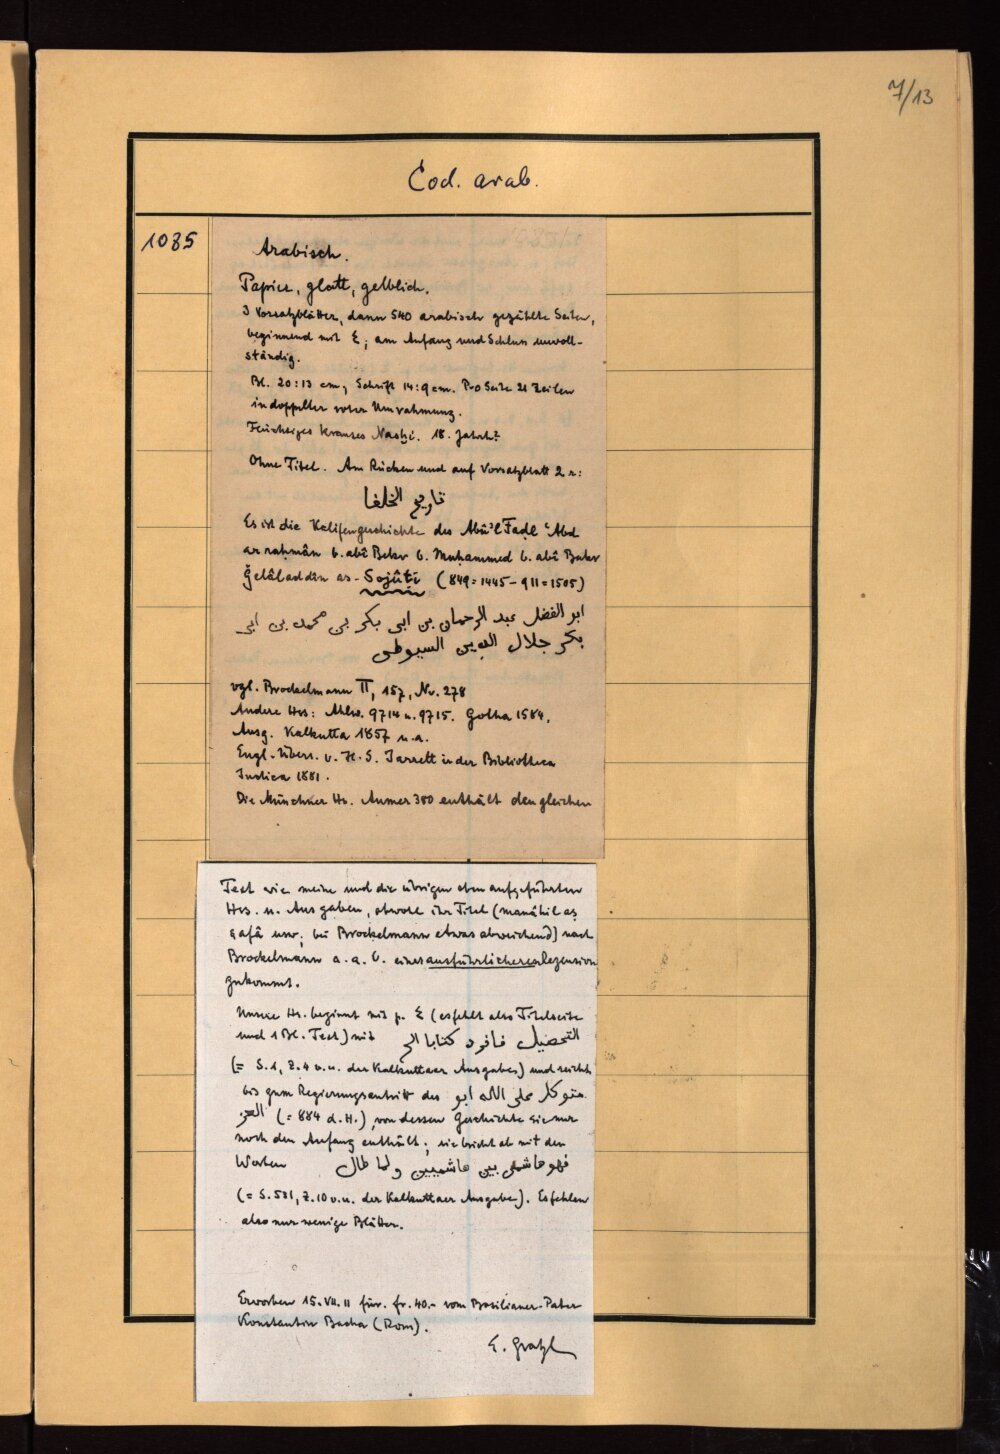 7/13
Cod. arab.
1085
Arabisch.
Papier, glatt, gelblich.
3 Vorsatzblätter, dann 540 arabisch gezählte Seiten,
beginnend mit ٤; am Anfang und Schluss unvoll-
ständig.
Bl. 20:13 cm; Schrift 14:9 cm. Pro Seite 21 Zeilen
in doppelter roter Umrahmung.
krauses Nashi. 18. Jahrh?
Ohne Titel. Am Rücken und auf Vorsatzblatt 2 r:
تاريخ الخلفا
Es ist die Kalifengeschichte des Abû'l Faḍl ʿAbd
ar raḥmân b. abî Bekr b. Muḥammed b. abî Bekr
Ǧelâladdîn as-Sojûṭî (849=1445-911=1505)
ابو الفضل عبد الرحمان بن ابى بكر بن محمد بن ابى
بكر جلال الدين السيوطى
vgl. Brockelmann II, 157, Nr. 278
Andere Hss: Ahlw. 9714 u. 9715. Gotha 1584.
Ausg. Kalkutta 1857 u.a.
Engl. Übers. v. H. S. Jarrett in der Bibliotheca
Indica 1881.
Die Münchner Hs. Aumer 380 enthält den gleichen
Text wie meine und die übrigen oben aufgeführten
Hss. u. Ausgaben, obwohl ihr Titel (manâhil aṣ
ṣafâ usw; bei Brockelmann etwas abweichend) nach
Brockelmann a. a. O. einer ausführlicheren Rezension
zukommt.
Unsere Hs. beginnt mit p. ٤ (es fehlt also Titelseite
und 1 Bl. Text) mit التحصيل فافرد كتابا الخ
(= S. 1, Z. 4 v.u. der Kalkuttaer Ausgabe) und reicht
bis zum Regierungsantritt des متوكل على الله ابو
العز (= 884 d. H.), von dessen Geschichte sie nur
noch den Anfang enthält; sie bricht ab mit den
Worten فهو هاشمى بين هاشميين ولما طال
(= S. 531, Z. 10 v.u. der Kalkuttaer Ausgabe). Es fehlen
also nur wenige Blätter.
Erworben 15. VII. 11 für fr. 40.- vom Basilianer-Pater
Konstantin Bacha (Rom).
E. Gratzl